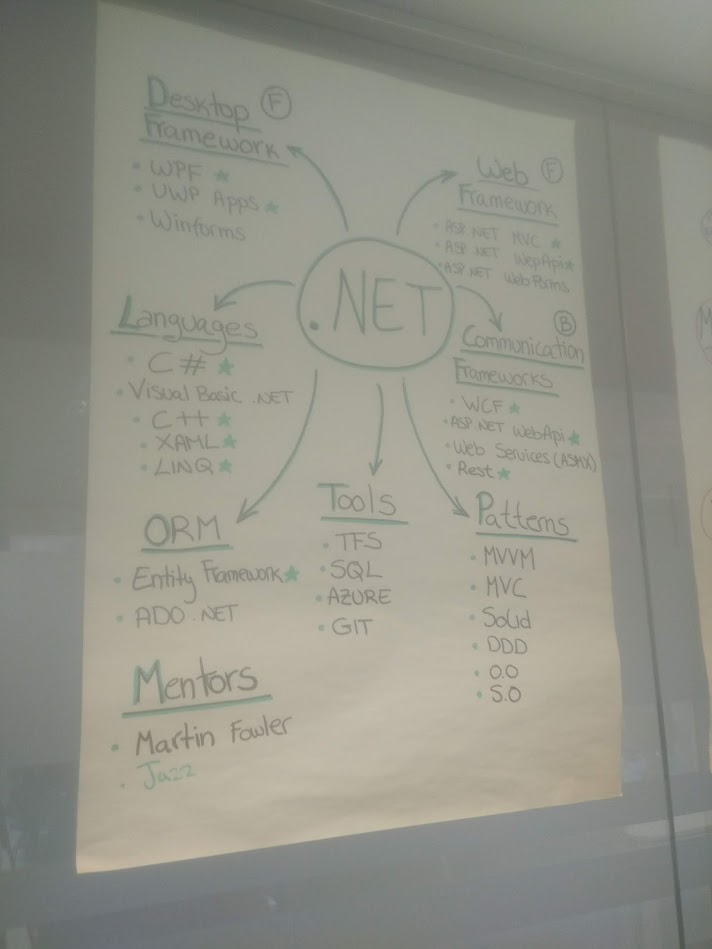 Desktop F
Framework
• WPF ★
• UWP Apps ★
• Winforms
Web F
Framework
• ASP.NET MVC ★
• ASP.NET WepApi ★
• ASP.NET WebForms
.NET
Languages
• C# ★
• Visual Basic .NET
• C++ ★
• XAML ★
• LINQ ★
B
Communication
Frameworks
• WCF ★
• ASP.NET WebApi ★
• Web Services (ASMX)
• Rest ★
ORM
• Entity Framework ★
• ADO.NET
Tools
• TFS
• SQL
• AZURE
• GIT
Patterns
• MVVM
• MVC
• Solid
• DDD
• O.O
• S.O
Mentors
• Martin Fowler
• Jazz